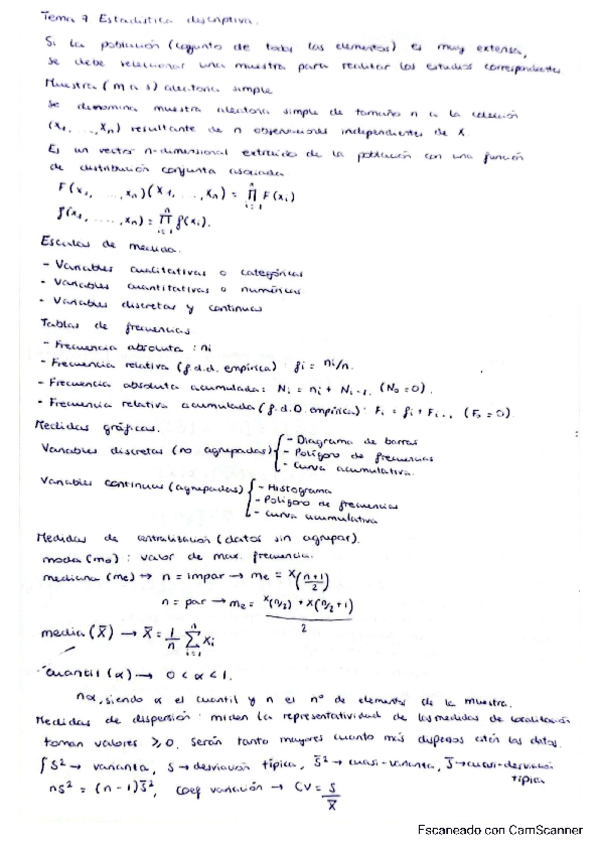 Tema 7 Estadística descriptiva.
Si la población (conjunto de todos los elementos) es muy extensa,
se debe seleccionar una muestra para realizar los estudios correspondientes
Muestra (m a s) aleatoria simple
se denomina muestra aleatoria simple de tamaño n a la colección
(X₁, ..., Xₙ) resultante de n observaciones independientes de X.
Es un vector n-dimensional extraído de la población con una función
de distribución conjunta asociada
F(x₁, ..., xₙ)(x₁, ..., xₙ) = ∏ⁿᵢ₌₁ F(xᵢ)
f(x₁, ...., xₙ) = ∏ⁿᵢ₌₁ f(xᵢ).
Escalas de medida.
- Variables cualitativas o categóricas
- Variables cuantitativas o numéricas
- Variables discretas y continuas
Tablas de frecuencias
- Frecuencia absoluta : nᵢ
- Frecuencia relativa (f.d.d. empírica) : fᵢ = nᵢ/n.
- Frecuencia absoluta acumulada: Nᵢ = nᵢ + Nᵢ₋₁. (N₀ = 0).
- Frecuencia relativa acumulada (f.d.D. empírica) : Fᵢ = fᵢ + Fᵢ₋₁ (F₀ = 0)
Medidas gráficas.
Variables discretas (no agrupadas) { - Diagrama de barras
- Polígono de frecuencias
- Curva acumulativa.
Variables continuas (agrupadas) { - Histograma
- Polígono de frecuencias
- Curva acumulativa
Medidas de centralización (datos sin agrupar).
moda (mo) : valor de max. frecuencia.
mediana (me) → n = impar → me = X((n+1)/2)
n = par → me = (X(n/2) + X(n/2 + 1))/2
media (X̄) → X̄ = 1/n ∑ⁿᵢ₌₁ Xᵢ
Cuantil (α) → 0 < α < 1.
nα, siendo α el cuantil y n el nº de elementos de la muestra.
Medidas de dispersión : miden la representatividad de las medidas de localización
toman valores ≥ 0. Serán tanto mayores cuanto más dispersos estén los datos.
{ S² → varianza, S → desviación típica, S̄² → cuasi-varianza, S̄ → cuasi-desviación típica
nS² = (n-1)S̄², coef variación → CV = S/X̄
Escaneado con CamScanner